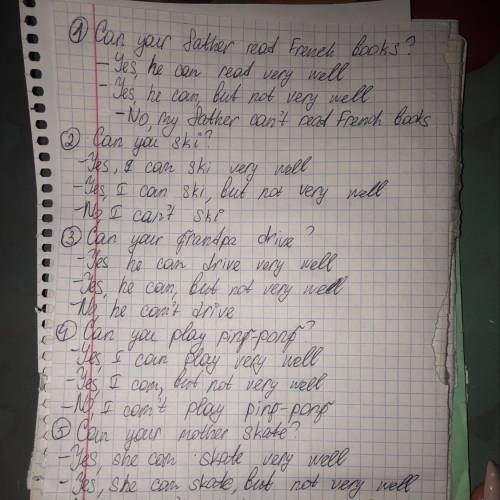 ① Can your father read French books?
- Yes, he can read very well
- Yes, he can, but not very well
- No, my father can't read French books
② Can you ski?
- Yes, I can ski very well
- Yes, I can ski, but not very well
- No, I can't ski
③ Can your grandpa drive?
- Yes he can drive very well
- Yes, he can, but not very well
- No, he can't drive
④ Can you play ping-pong?
- Yes, I can play very well
- Yes, I can, but not very well
- No, I can't play ping-pong
⑤ Can your mother skate?
- Yes, she can skate very well
- Yes, she can skate, but not very well